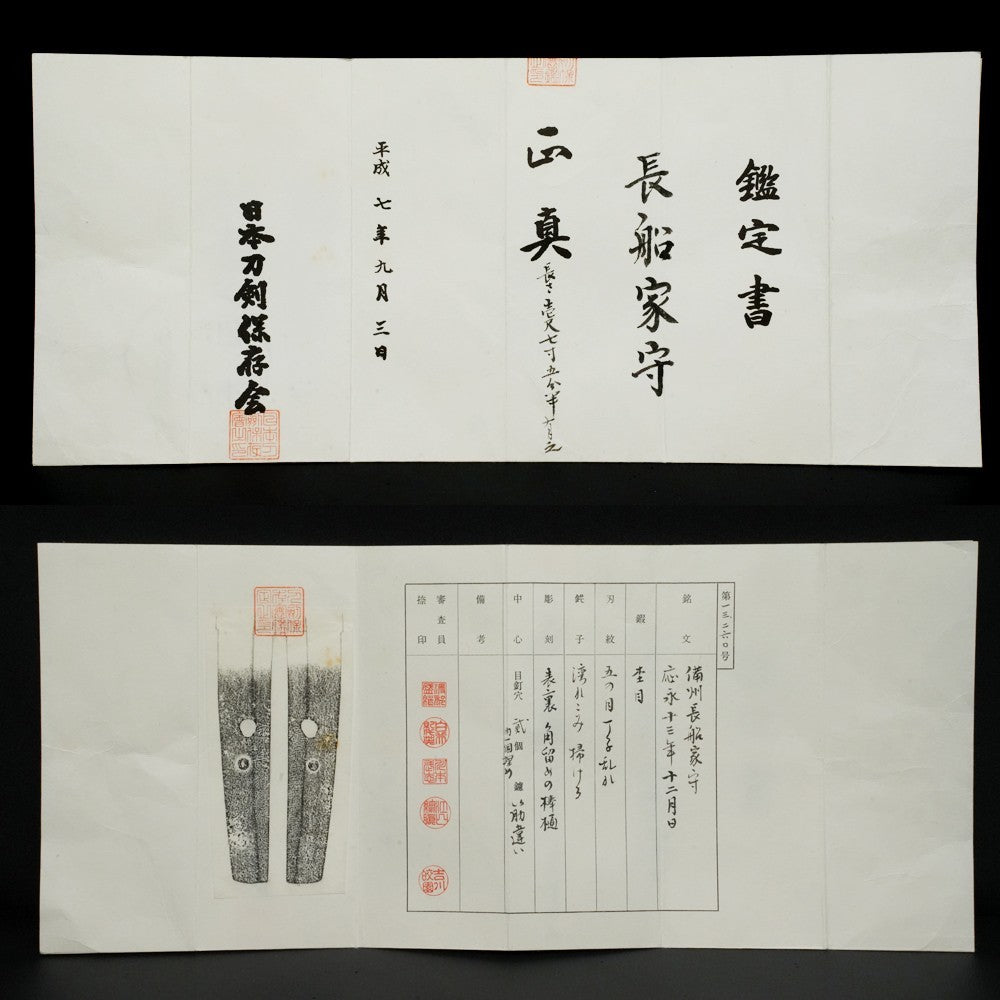 鑑定書
長船家守
正真
長さ壹尺七寸五分半
平成七年九月三日
日本刀剣保存会
第一三二六〇号
銘文
備州長船家守
応永十三年十二月日
鍜
杢目
刃紋
五の目丁子乱れ
鋩子
乱れこみ掃ける
彫刻
表裏角留めの棒樋
中心
目釘穴 貳個 内一個埋め 鑢 筋違い
備考
審査員
捺印